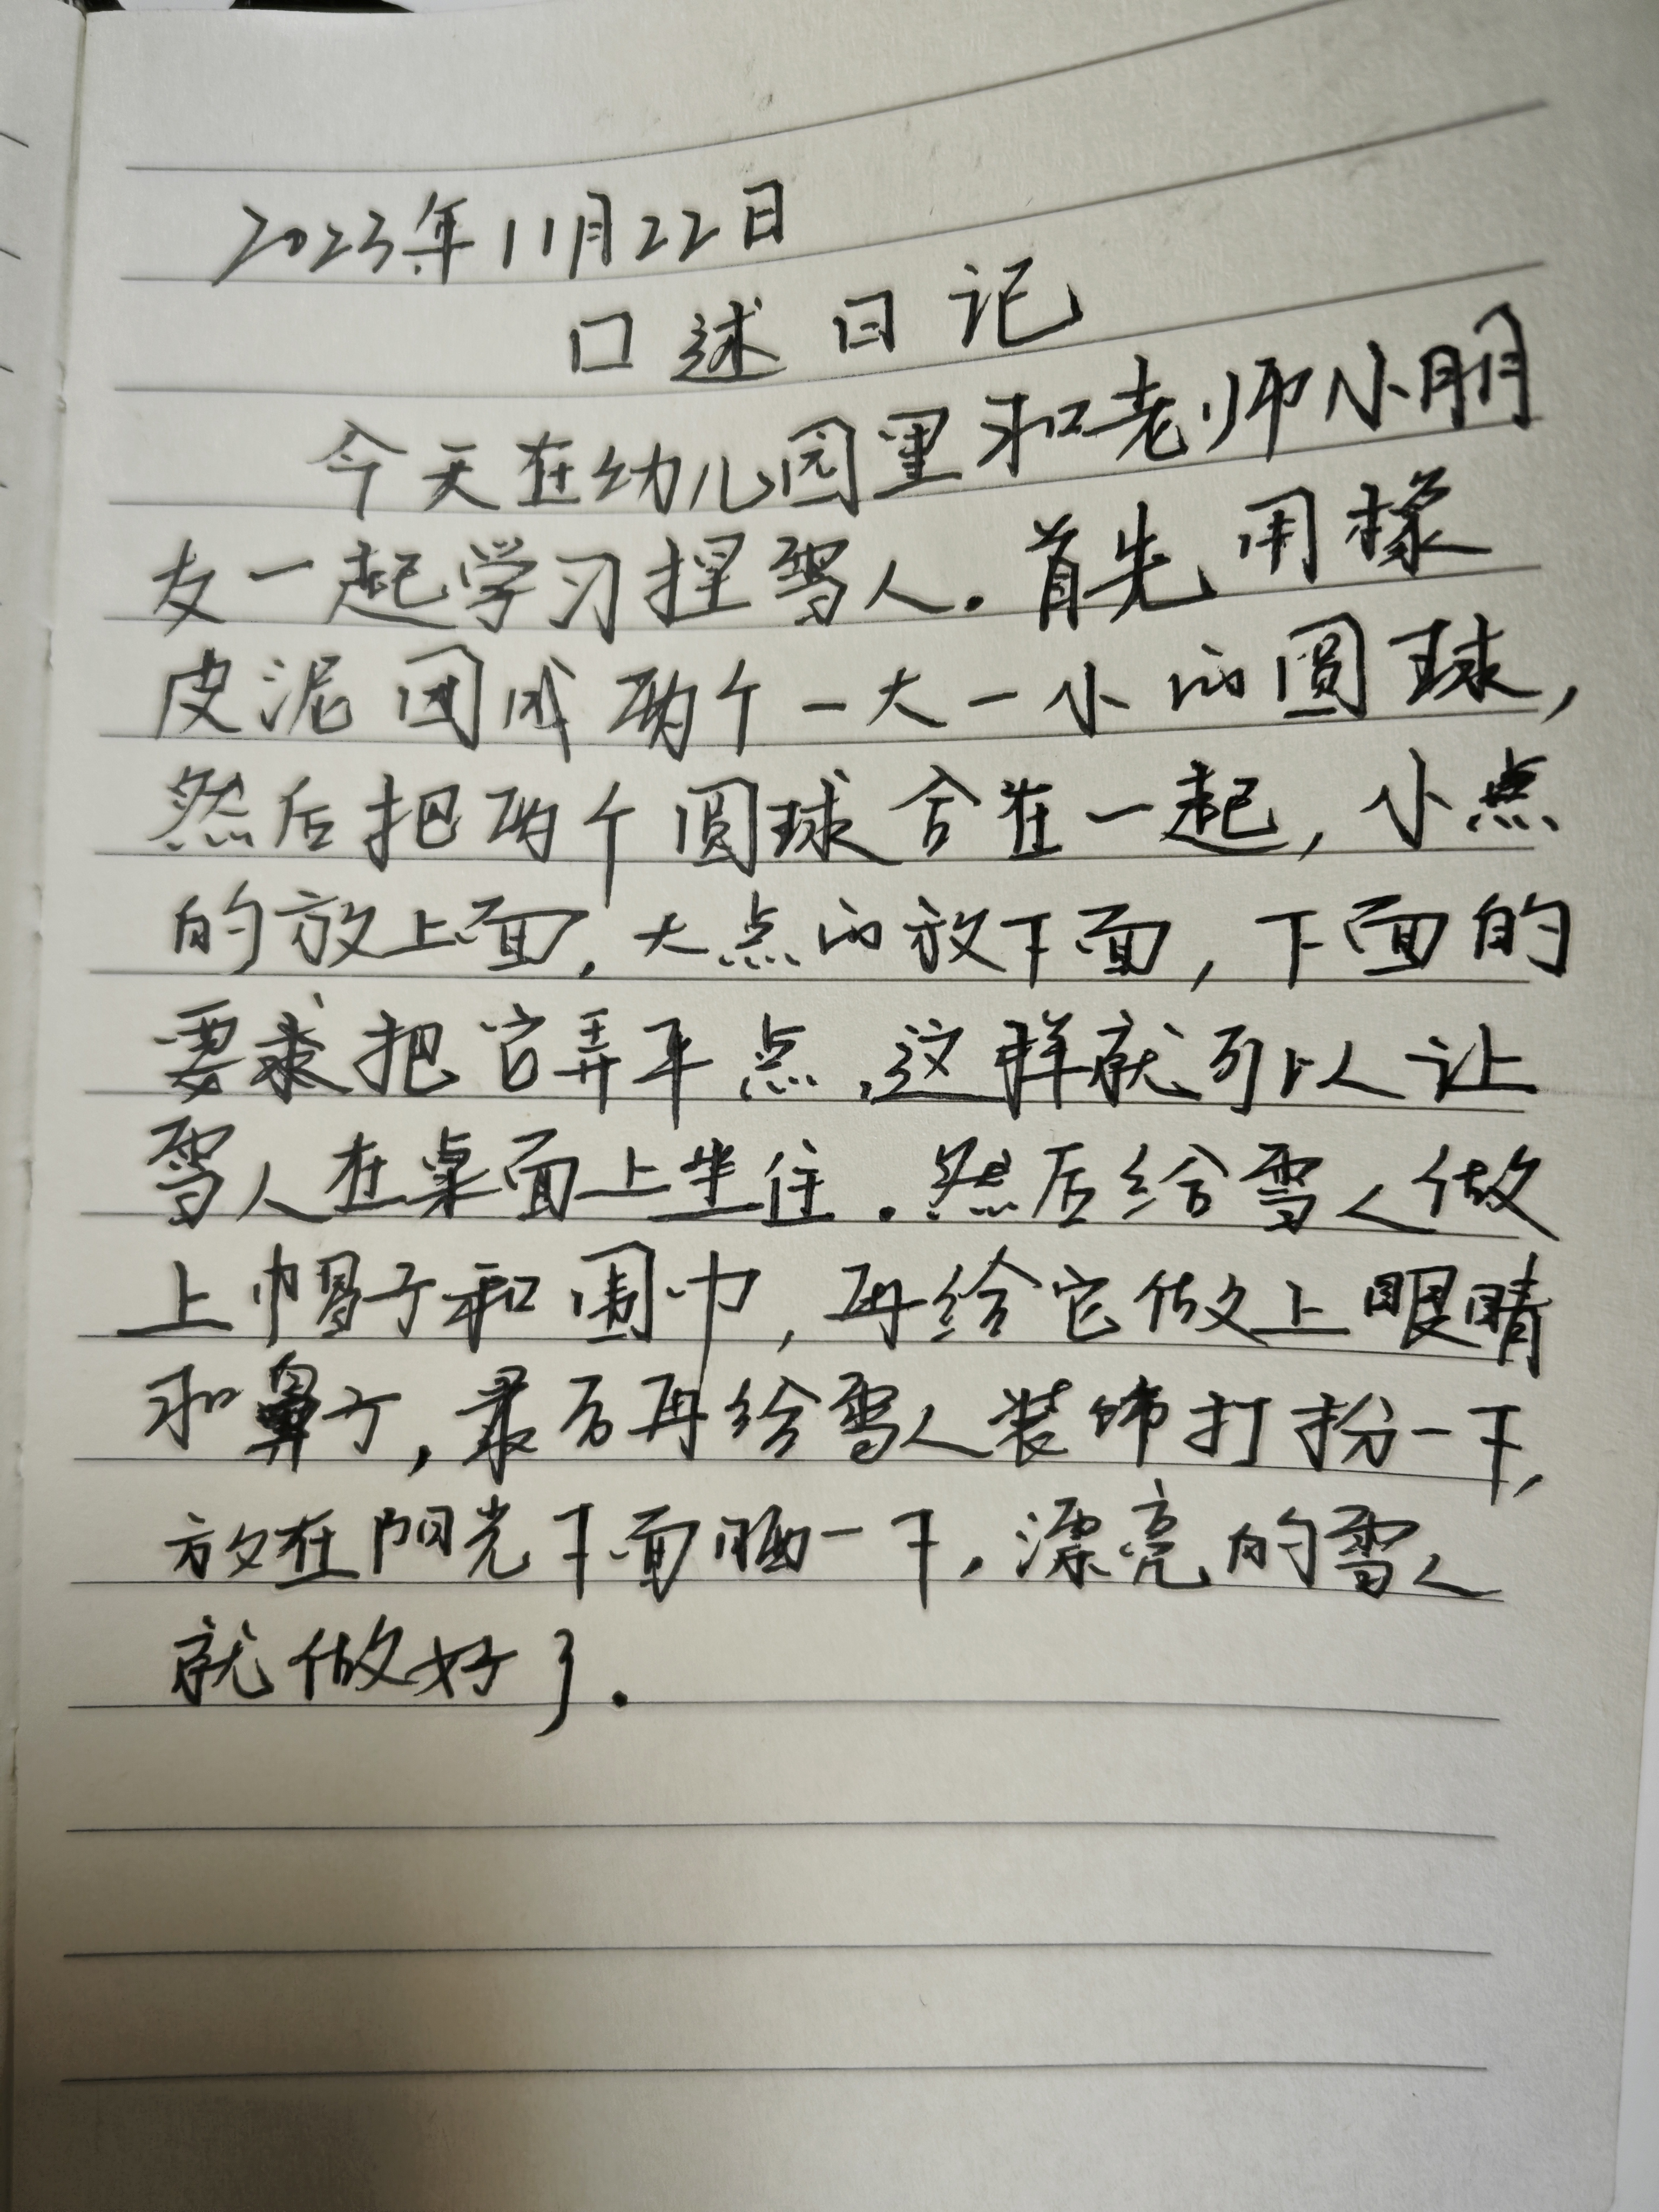 2023年11月22日
口述日记
今天在幼儿园里和老师小朋
友一起学习捏雪人.首先用橡
皮泥团成两个一大一小的圆球,
然后把两个圆球合在一起,小点
的放上面,大点的放下面,下面的
要求把它弄平点,这样就可以让
雪人在桌面上坐住.然后给雪人做
上帽子和围巾,再给它做上眼睛
和鼻子,最后再给雪人装饰打扮一下,
放在阳光下面晒一下,漂亮的雪人
就做好了.